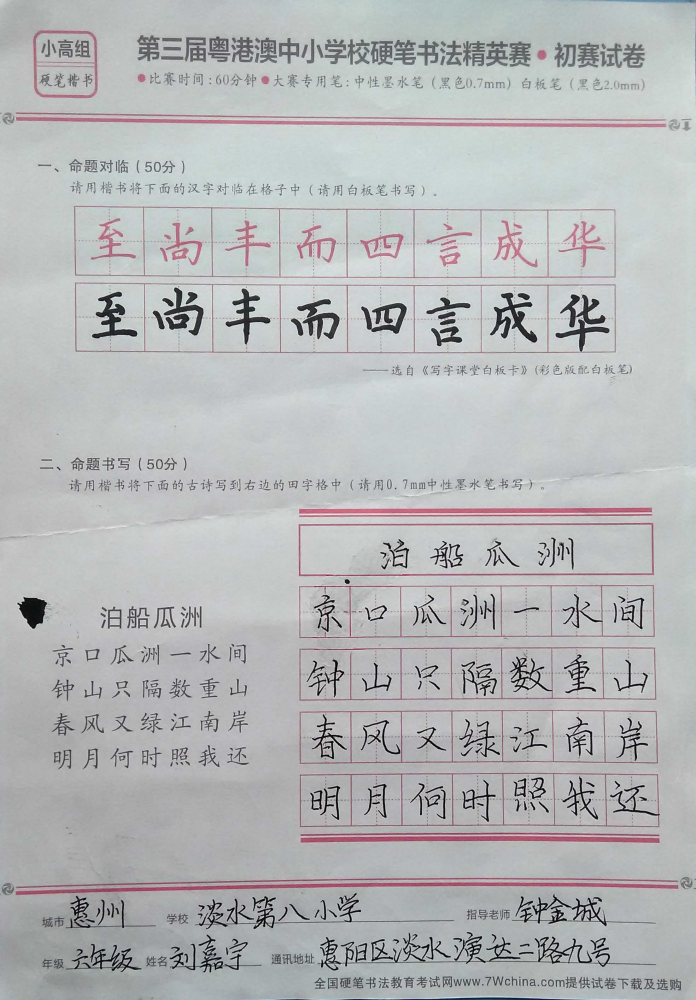 小高组
硬笔楷书
第三届粤港澳中小学校硬笔书法精英赛•初赛试卷
●比赛时间:60分钟●大赛专用笔:中性墨水笔(黑色0.7mm) 白板笔(黑色2.0mm)
一、命题对临(50分)
请用楷书将下面的汉字对临在格子中(请用白板笔书写)。
至尚丰而四言成华
至尚丰而四言成华
——选自《写字课堂白板卡》(彩色版配白板笔)
二、命题书写(50分)
请用楷书将下面的古诗写到右边的田字格中(请用0.7mm中性墨水笔书写)。
泊船瓜洲
京口瓜洲一水间
钟山只隔数重山
春风又绿江南岸
明月何时照我还
泊船瓜洲
京口瓜洲一水间
钟山只隔数重山
春风又绿江南岸
明月何时照我还
城市 惠州 学校 淡水第八小学 指导老师 钟金城
年级 六年级 姓名 刘嘉宇 通讯地址 惠阳区淡水演达二路九号
全国硬笔书法教育考试网www.7Wchina.com提供试卷下载及选购